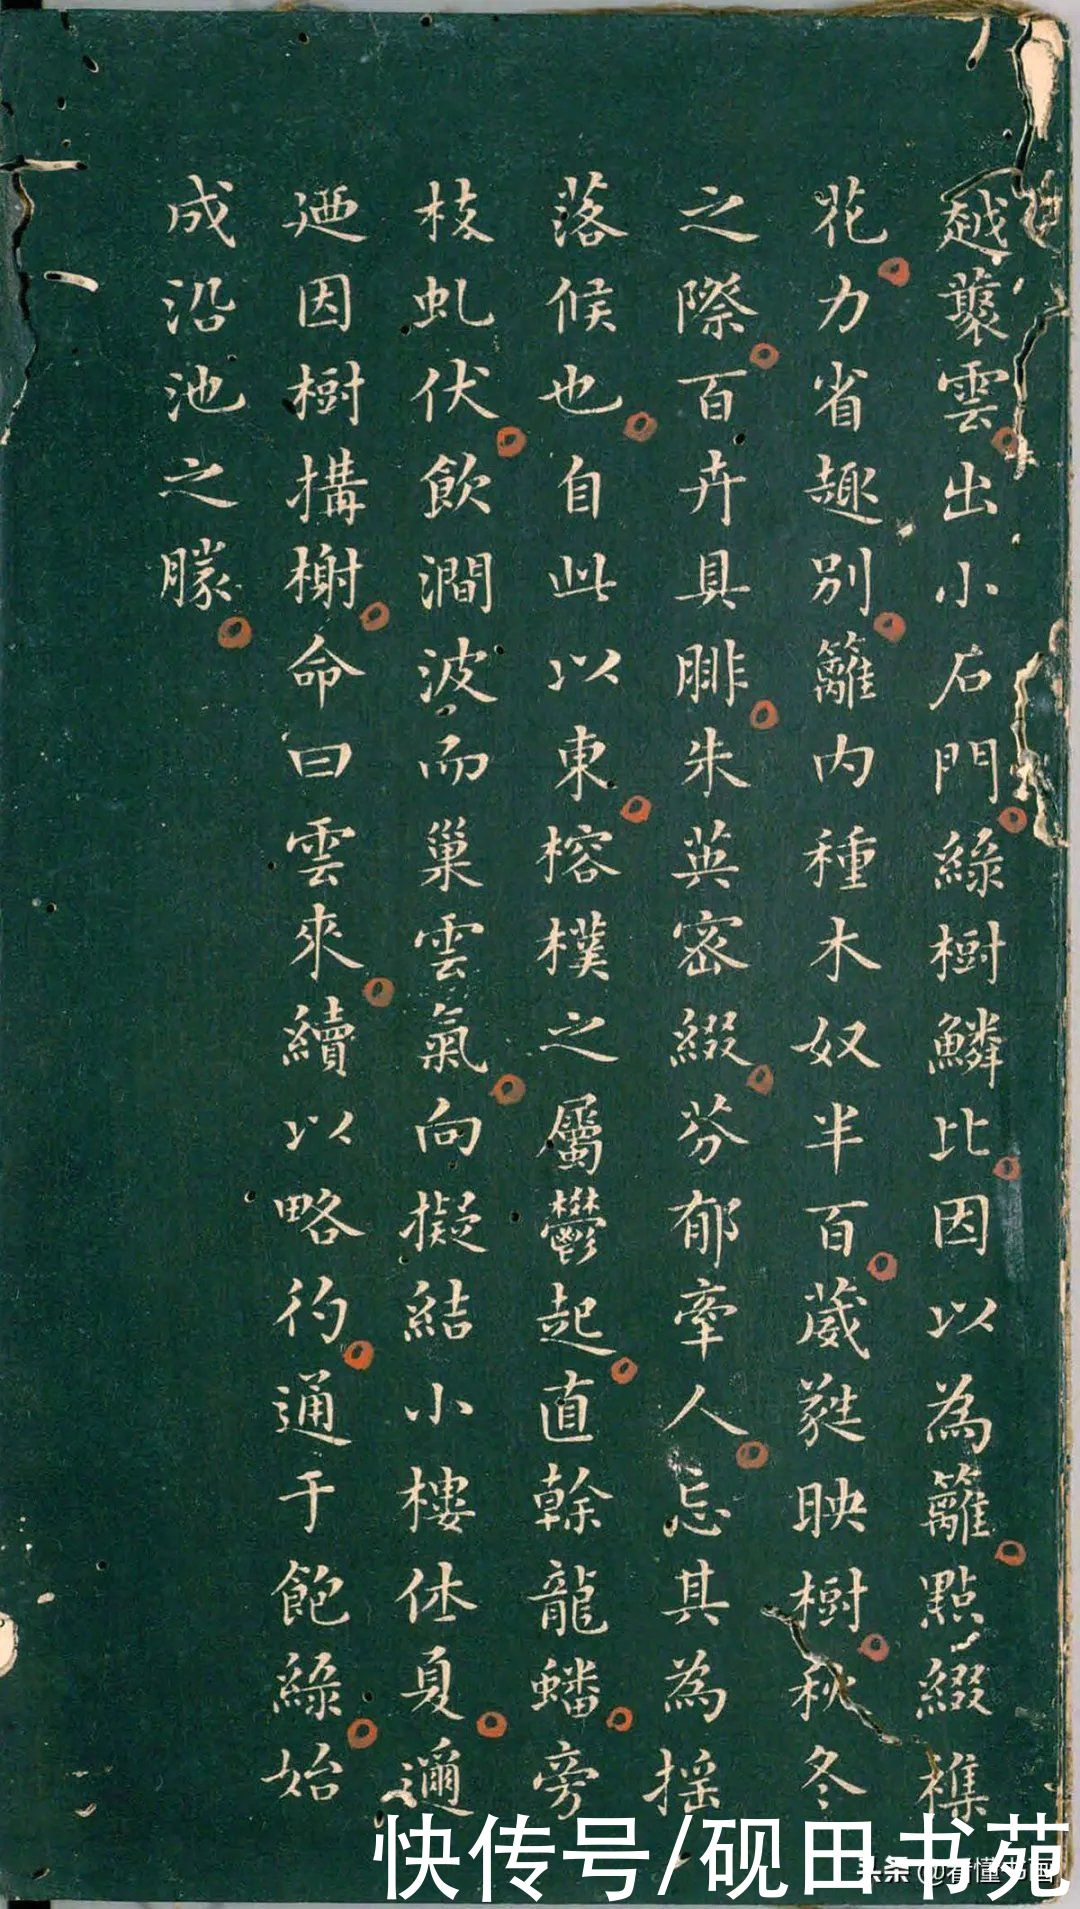 越藂雲出小石門綠樹鱗比因以為籬點綴襍
花力省趣別籬内種木奴半百葳蕤映樹秋冬
之際百卉具腓朱英密綴芬郁牽人忘其為揺
落候也自此以東榕樸之屬鬱起直榦龍蟠旁
枝虬伏飲澗波而巢雲氣向擬結小樓休夏邇
迺因樹構榭命曰雲來續以略彴通于飽綠始
成沿池之勝
快传号/砚田书苑
头条@看懂书画